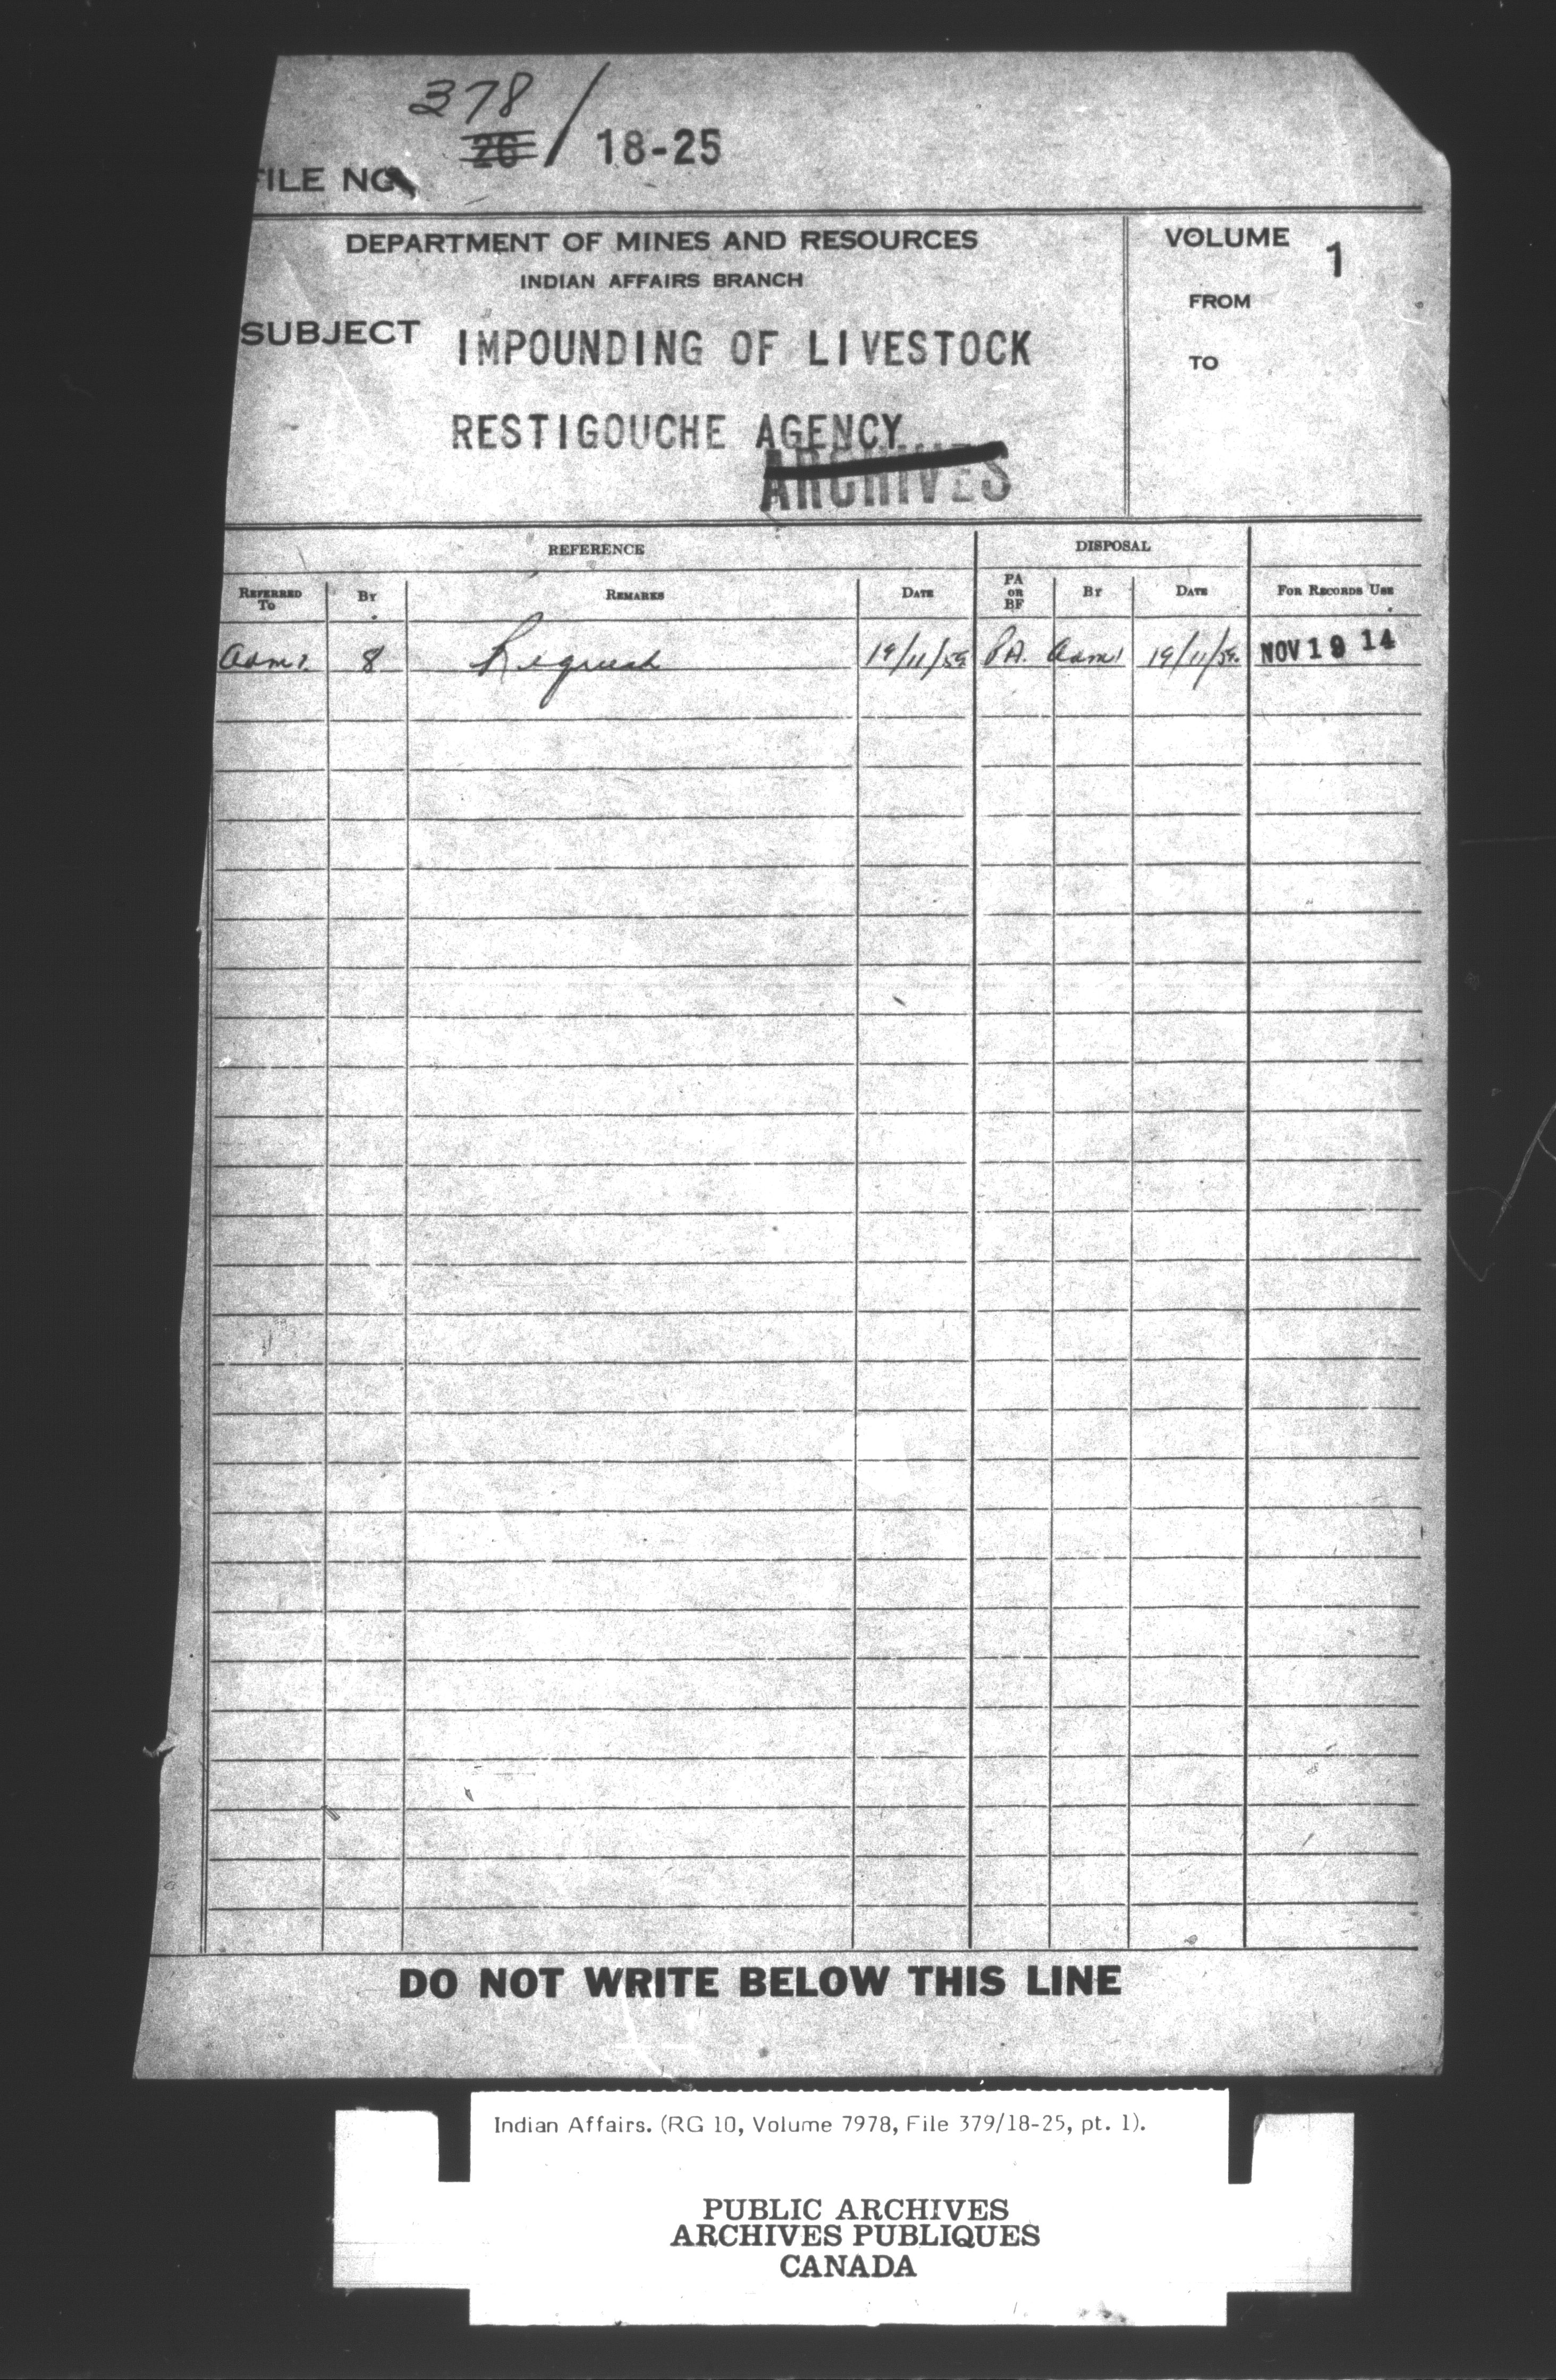 378 /
26 / 18-25
FILE NO.
DEPARTMENT OF MINES AND RESOURCES
INDIAN AFFAIRS BRANCH
VOLUME 1
FROM
TO
SUBJECT IMPOUNDING OF LIVESTOCK
RESTIGOUCHE AGENCY
ARCHIVES
REFERENCE DISPOSAL
REFERRED TO BY REMARKS DATE PA OR BF BY DATE FOR RECORDS USE
Adm. 8 Request 19/11/59 PA. Adm 19/11/59. NOV 19 14
DO NOT WRITE BELOW THIS LINE
Indian Affairs. (RG 10, Volume 7978, File 379/18-25, pt. 1).
PUBLIC ARCHIVES
ARCHIVES PUBLIQUES
CANADA